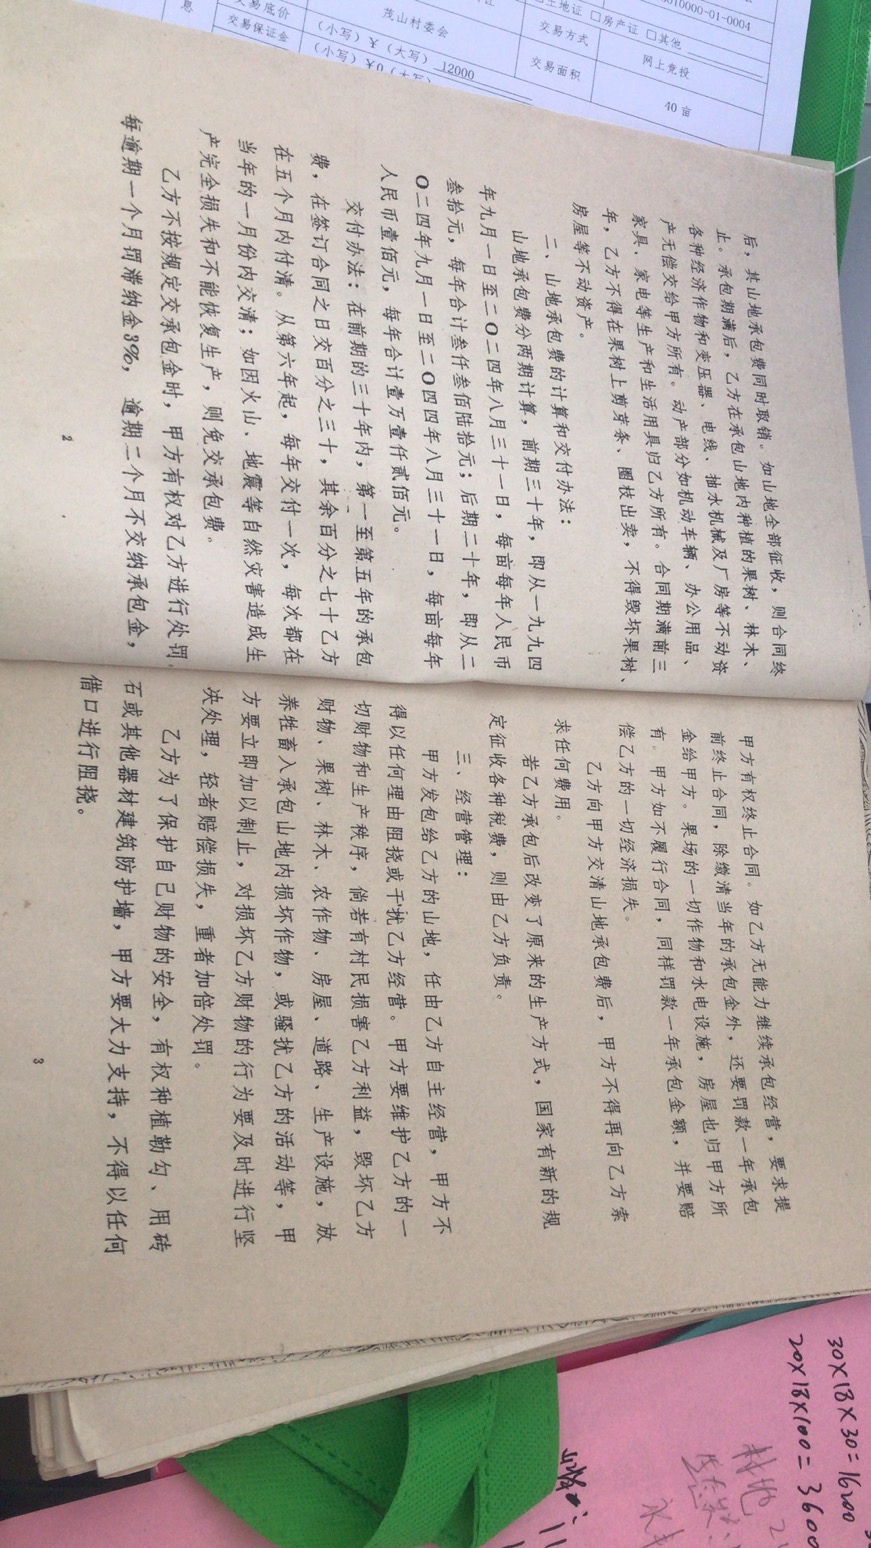 后，其山地承包费同时取销。如山地全部征收，则合同终
止。承包期满后，乙方在承包山地内种植的果树、林木、
各种经济作物和变压器、电线、抽水机械及厂房等不动资
产无偿交给甲方所有。动产部分如机动车辆、办公用品、
家具、家电等生产和生活用具归乙方所有。合同期满前三
年，乙方不得在果树上剪芽条、圈枝出卖，不得毁坏果树、
房屋等不动资产。
二、山地承包费的计算和交付办法：
山地承包费分两期计算，前期三十年，即从一九九四
年九月一日至二O二四年八月三十一日，每亩每年人民币
叁拾元，每年合计叁仟叁佰陆拾元；后期二十年，即从二
O二四年九月一日至二O四四年八月三十一日，每亩每年
人民币壹佰元，每年合计壹万壹仟贰佰元。
交付办法：在前期的三十年内，第一至第五年的承包
费，在签订合同之日交百分之三十，其余百分之七十乙方
在五个月内付清。从第六年起，每年交付一次，每次都在
当年的一月份内交清；如因火山、地震等自然灾害造成生
产完全损失和不能恢复生产，则免交承包费。
乙方不按规定交承包金时，甲方有权对乙方进行处罚，
每逾期一个月罚滞纳金3%，逾期二个月不交纳承包金，
2
甲方有权终止合同。如乙方无能力继续承包经营，要求提
前终止合同，除缴清当年的承包金外，还要罚款一年承包
金给甲方。果场的一切作物和水电设施，房屋也归甲方所
有。甲方如不履行合同，同样罚款一年承包金额，并要赔
偿乙方的一切经济损失。
乙方向甲方交清山地承包费后，甲方不得再向乙方索
求任何费用。
若乙方承包后改变了原来的生产方式，国家有新的规
定征收各种税费，则由乙方负责。
三、经营管理：
甲方发包给乙方的山地，任由乙方自主经营，甲方不
得以任何理由阻挠或干扰乙方经营。甲方要维护乙方的一
切财物和生产秩序，倘若有村民损害乙方利益，毁坏乙方
财物、果树、林木、农作物、房屋、道路、生产设施，放
养牲畜入承包山地内损坏作物，或骚扰乙方的活动等，甲
方要立即加以制止，对损坏乙方财物的行为要及时进行坚
决处理，轻者赔偿损失，重者加倍处罚。
乙方为了保护自己财物的安全，有权种植勒勾、用砖
石或其他器材建筑防护墙，甲方要大力支持，不得以任何
借口进行阻挠。
3
土地证 □房产证 □其他
010000-01-0004
息
交易底价
茂山村委会
交易方式
网上竞投
交易保证金
(小写)￥ (大写) 12000
交易面积
40 亩
(小写)￥0
30×18×30=16200
20×18×100=3600